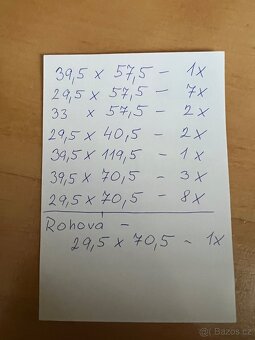 39,5 x 57,5 - 1x
29,5 x 57,5 - 7x
33 x 57,5 - 2x
29,5 x 40,5 - 2x
39,5 x 119,5 - 1x
39,5 x 70,5 - 3x
29,5 x 70,5 - 8x
Rohová -
29,5 x 70,5 - 1x
Bazos.cz